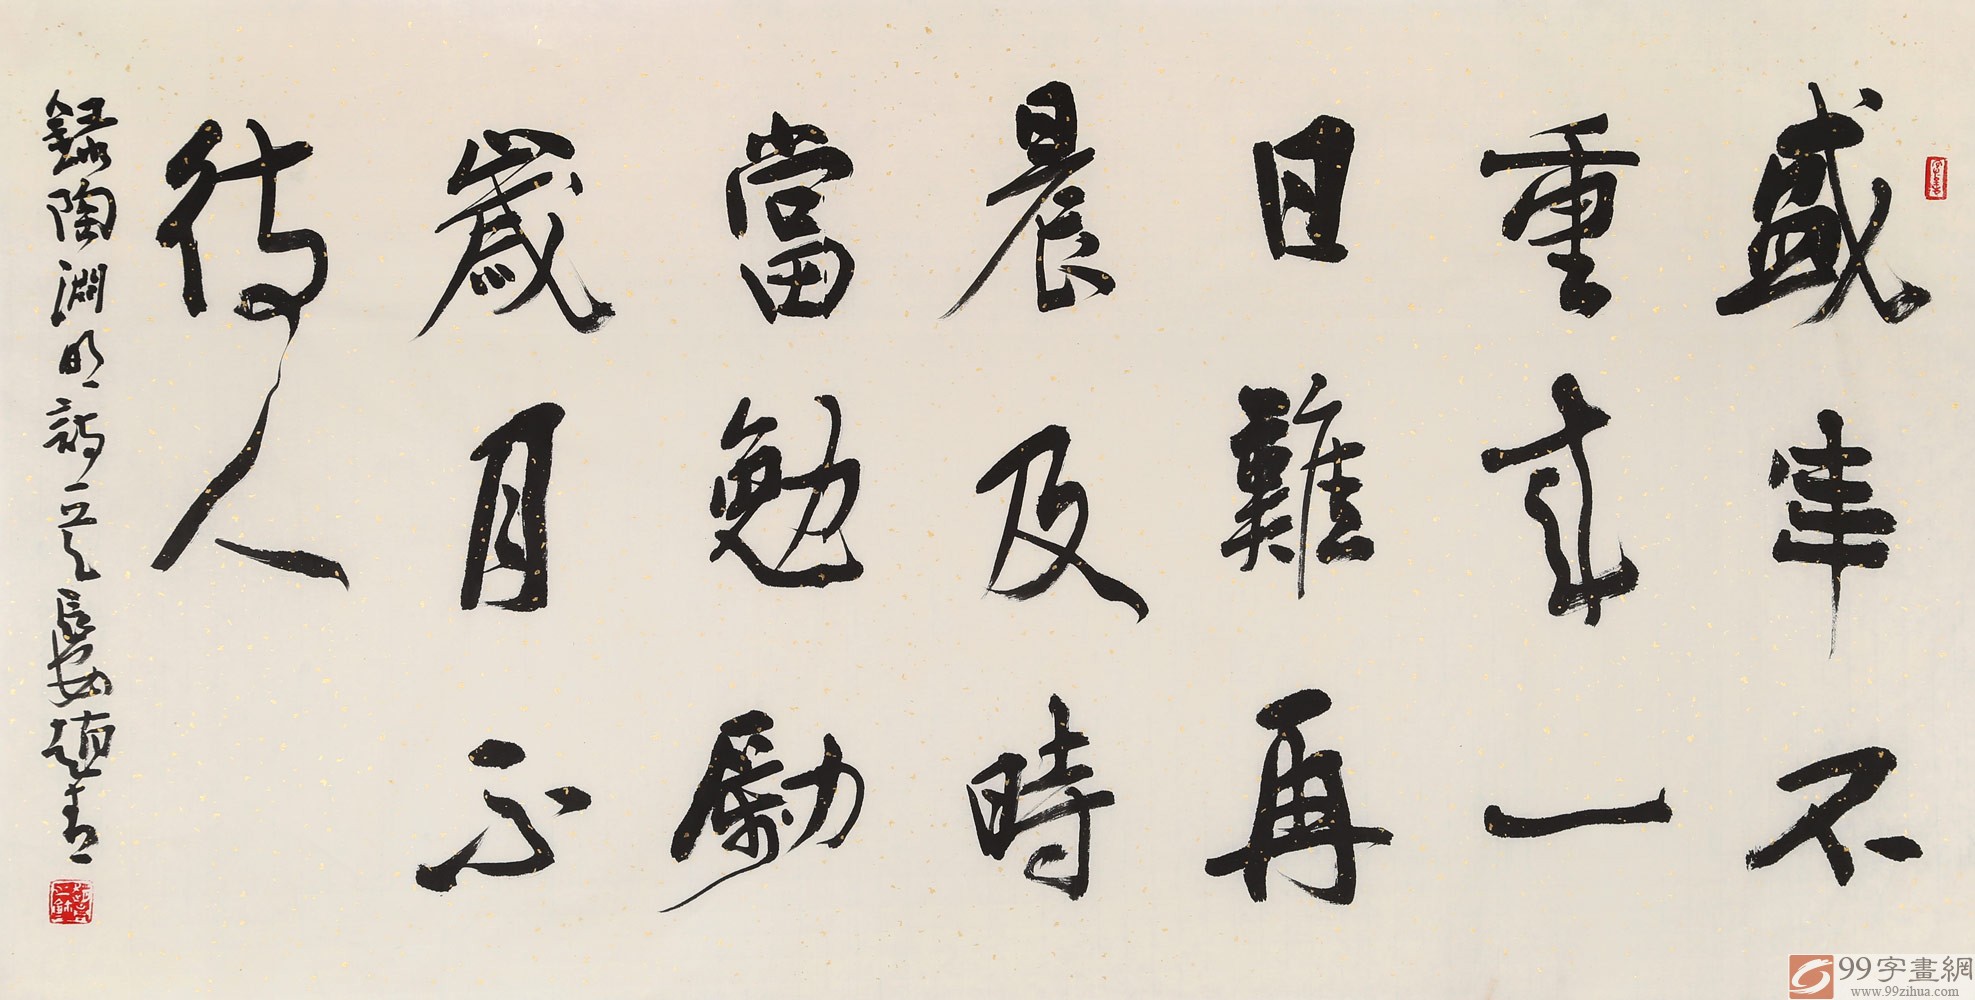 盛年不
重來一
日難再
晨及時
當勉勵
歲月不
待人
錄陶淵明詩 長安趙青
99字畫網
www.99zihua.com